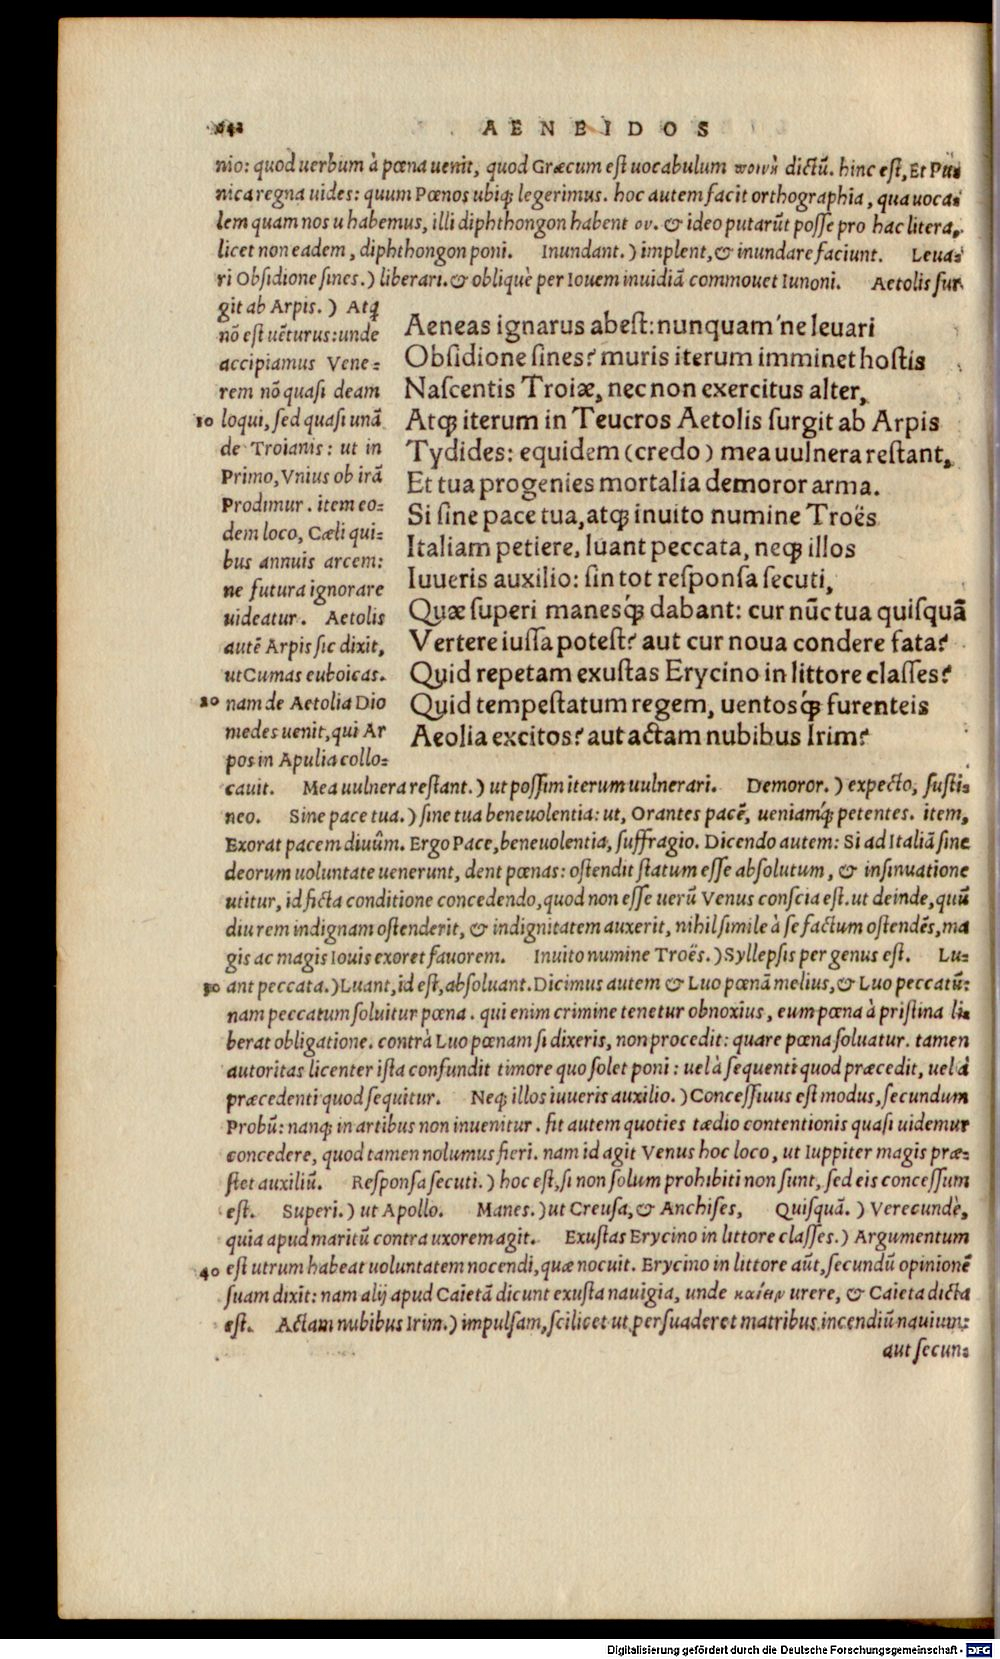 642
AENEIDOS
nio: quod uerbum à pœna uenit, quod Græcum est uocabulum ποινὴ dictũ. hinc est, Et Pu=
nica regna uides: quum Pœnos ubiq; legerimus. hoc autem facit orthographia, qua uoca=
lem quam nos u habemus, illi diphthongon habent ου. & ideo putarũt posse pro hac litera,
licet non eadem, diphthongon poni. Inundant.) implent, & inundare faciunt. Leua=
ri Obsidione sines.) liberari. & obliquè per Iouem inuidiã commouet Iunoni. Aetolis sur
git ab Arpis.) Atq;
nõ est uẽturus: unde
accipiamus Vene=
rem nõ quasi deam
10 loqui, sed quasi unã
de Troianis: ut in
Primo, Vnius ob irã
Prodimur. item eo=
dem loco, Cæli qui=
bus annuis arcem:
ne futura ignorare
uideatur. Aetolis
autẽ Arpis sic dixit,
ut Cumas euboicas.
20 nam de Aetolia Dio
medes uenit, qui Ar
pos in Apulia collo=
Aeneas ignarus abest: nunquam'ne leuari
Obsidione sines? muris iterum imminet hostis
Nascentis Troiæ, nec non exercitus alter,
Atq; iterum in Teucros Aetolis surgit ab Arpis
Tydides: equidem (credo) mea uulnera restant,
Et tua progenies mortalia demoror arma.
Si sine pace tua, atq; inuito numine Troës
Italiam petiere, luant peccata, neq; illos
Iuueris auxilio: sin tot responsa secuti,
Quæ superi manesq́; dabant: cur nũc tua quisquã
Vertere iussa potest? aut cur noua condere fata?
Quid repetam exustas Erycino in littore classes?
Quid tempestatum regem, uentosq́; furenteis
Aeolia excitos? aut actam nubibus Irim?
cauit. Mea uulnera restant.) ut possim iterum uulnerari. Demoror.) expecto, susti=
neo. Sine pace tua.) sine tua beneuolentia: ut, Orantes pacẽ, ueniamq́; petentes. item,
Exorat pacem diuûm. Ergo Pace, beneuolentia, suffragio. Dicendo autem: Si ad Italiã sine
deorum uoluntate uenerunt, dent pœnas: ostendit statum esse absolutum, & insinuatione
utitur, id ficta conditione concedendo, quod non esse uerũ Venus conscia est. ut deinde, quũ
diu rem indignam ostenderit, & indignitatem auxerit, nihil simile à se factum ostendẽs, ma
gis ac magis Iouis exoret fauorem. Inuito numine Troës.) Syllepsis per genus est. Lu=
30 ant peccata.) Luant, id est, absoluant. Dicimus autem & Luo pœnã melius, & Luo peccatũ:
nam peccatum soluitur pœna. qui enim crimine tenetur obnoxius, eum pœna à pristina li=
berat obligatione. contrà Luo pœnam si dixeris, non procedit: quare pœna soluatur. tamen
autoritas licenter ista confundit timore quo solet poni: uel à sequenti quod præcedit, uel à
præcedenti quod sequitur. Neq; illos iuueris auxilio.) Concessiuus est modus, secundum
Probũ: nanq; in artibus non inuenitur. fit autem quoties tædio contentionis quasi uidemur
concedere, quod tamen nolumus fieri. nam id agit Venus hoc loco, ut Iuppiter magis præ=
stet auxiliũ. Responsa secuti.) hoc est, si non solum prohibiti non sunt, sed eis concessum
est. Superi.) ut Apollo. Manes.) ut Creusa, & Anchises, Quisquã.) Verecundè,
quia apud maritũ contra uxorem agit. Exustas Erycino in littore classes.) Argumentum
40 est utrum habeat uoluntatem nocendi, quæ nocuit. Erycino in littore aũt, secundũ opinionẽ
suam dixit: nam alij apud Caietã dicunt exusta nauigia, unde καίειν urere, & Caieta dicta
est. Actam nubibus Irim.) impulsam, scilicet ut persuaderet matribus incendiũ nauium:
aut secun=
Digitalisierung gefördert durch die Deutsche Forschungsgemeinschaft - DFG